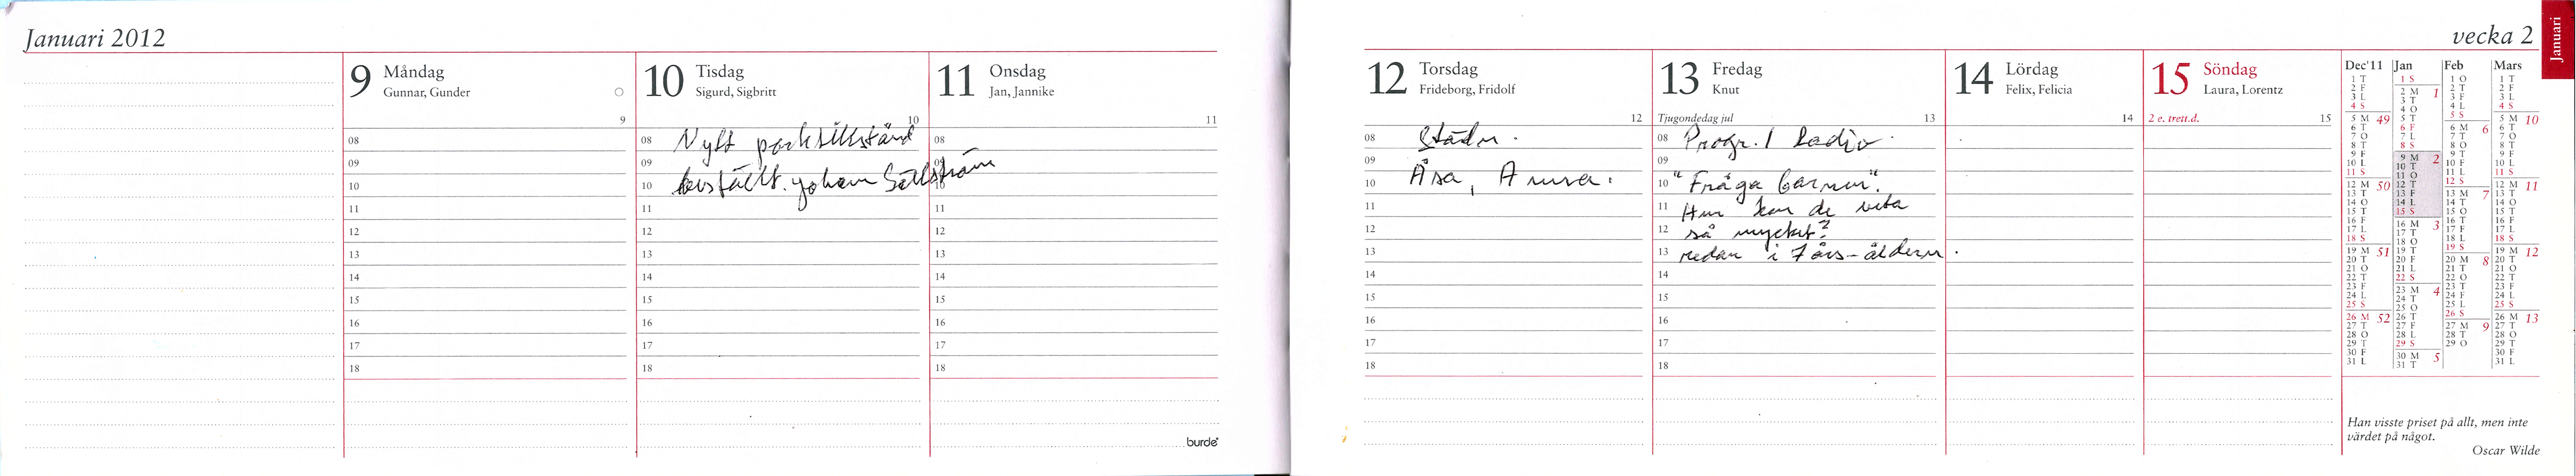 Januari 2012
9 Måndag
Gunnar, Gunder
9
08
09
10
11
12
13
14
15
16
17
18
10 Tisdag
Sigurd, Sigbritt
10
08 Nytt parktillstånd
09
10 beställt. Johan Sällström
11
12
13
14
15
16
17
18
11 Onsdag
Jan, Jannike
11
08
09
10
11
12
13
14
15
16
17
18
burde
vecka 2
Januari
12 Torsdag
Frideborg, Fridolf
12
08 Städn.
09
10 Åsa, Anna.
11
12
13
14
15
16
17
18
13 Fredag
Knut
Tjugondedag jul 13
08 Progr. 1 Radio
09
10 "Fråga barnen".
11 Hur kan de veta
12 så mycket?
13 redan i 7 års-åldern.
14
15
16
17
18
14 Lördag
Felix, Felicia
14
15 Söndag
Laura, Lorentz
2 e. trett.d. 15
Dec'11 Jan Feb Mars
1 T 1 S 1 O 1 T
2 F 2 M 1 2 T 2 F
3 L 3 T 3 F 3 L
4 S 4 O 4 L 4 S
5 M 49 5 T 5 S 5 M 10
6 T 6 F 6 M 6 6 T
7 O 7 L 7 T 7 O
8 T 8 S 8 O 8 T
9 F 9 M 2 9 T 9 F
10 L 10 T 10 F 10 L
11 S 11 O 11 L 11 S
12 M 50 12 T 12 S 12 M 11
13 T 13 F 13 M 7 13 T
14 O 14 L 14 T 14 O
15 T 15 S 15 O 15 T
16 F 16 M 3 16 T 16 F
17 L 17 T 17 F 17 L
18 S 18 O 18 L 18 S
19 M 51 19 T 19 S 19 M 12
20 T 20 F 20 M 8 20 T
21 O 21 L 21 T 21 O
22 T 22 S 22 O 22 T
23 F 23 M 4 23 T 23 F
24 L 24 T 24 F 24 L
25 S 25 O 25 L 25 S
26 M 52 26 T 26 S 26 M 13
27 T 27 F 27 M 9 27 T
28 O 28 L 28 T 28 O
29 T 29 S 29 O 29 T
30 F 30 M 5 30 F
31 L 31 T 31 L
Han visste priset på allt, men inte
värdet på något.
Oscar Wilde